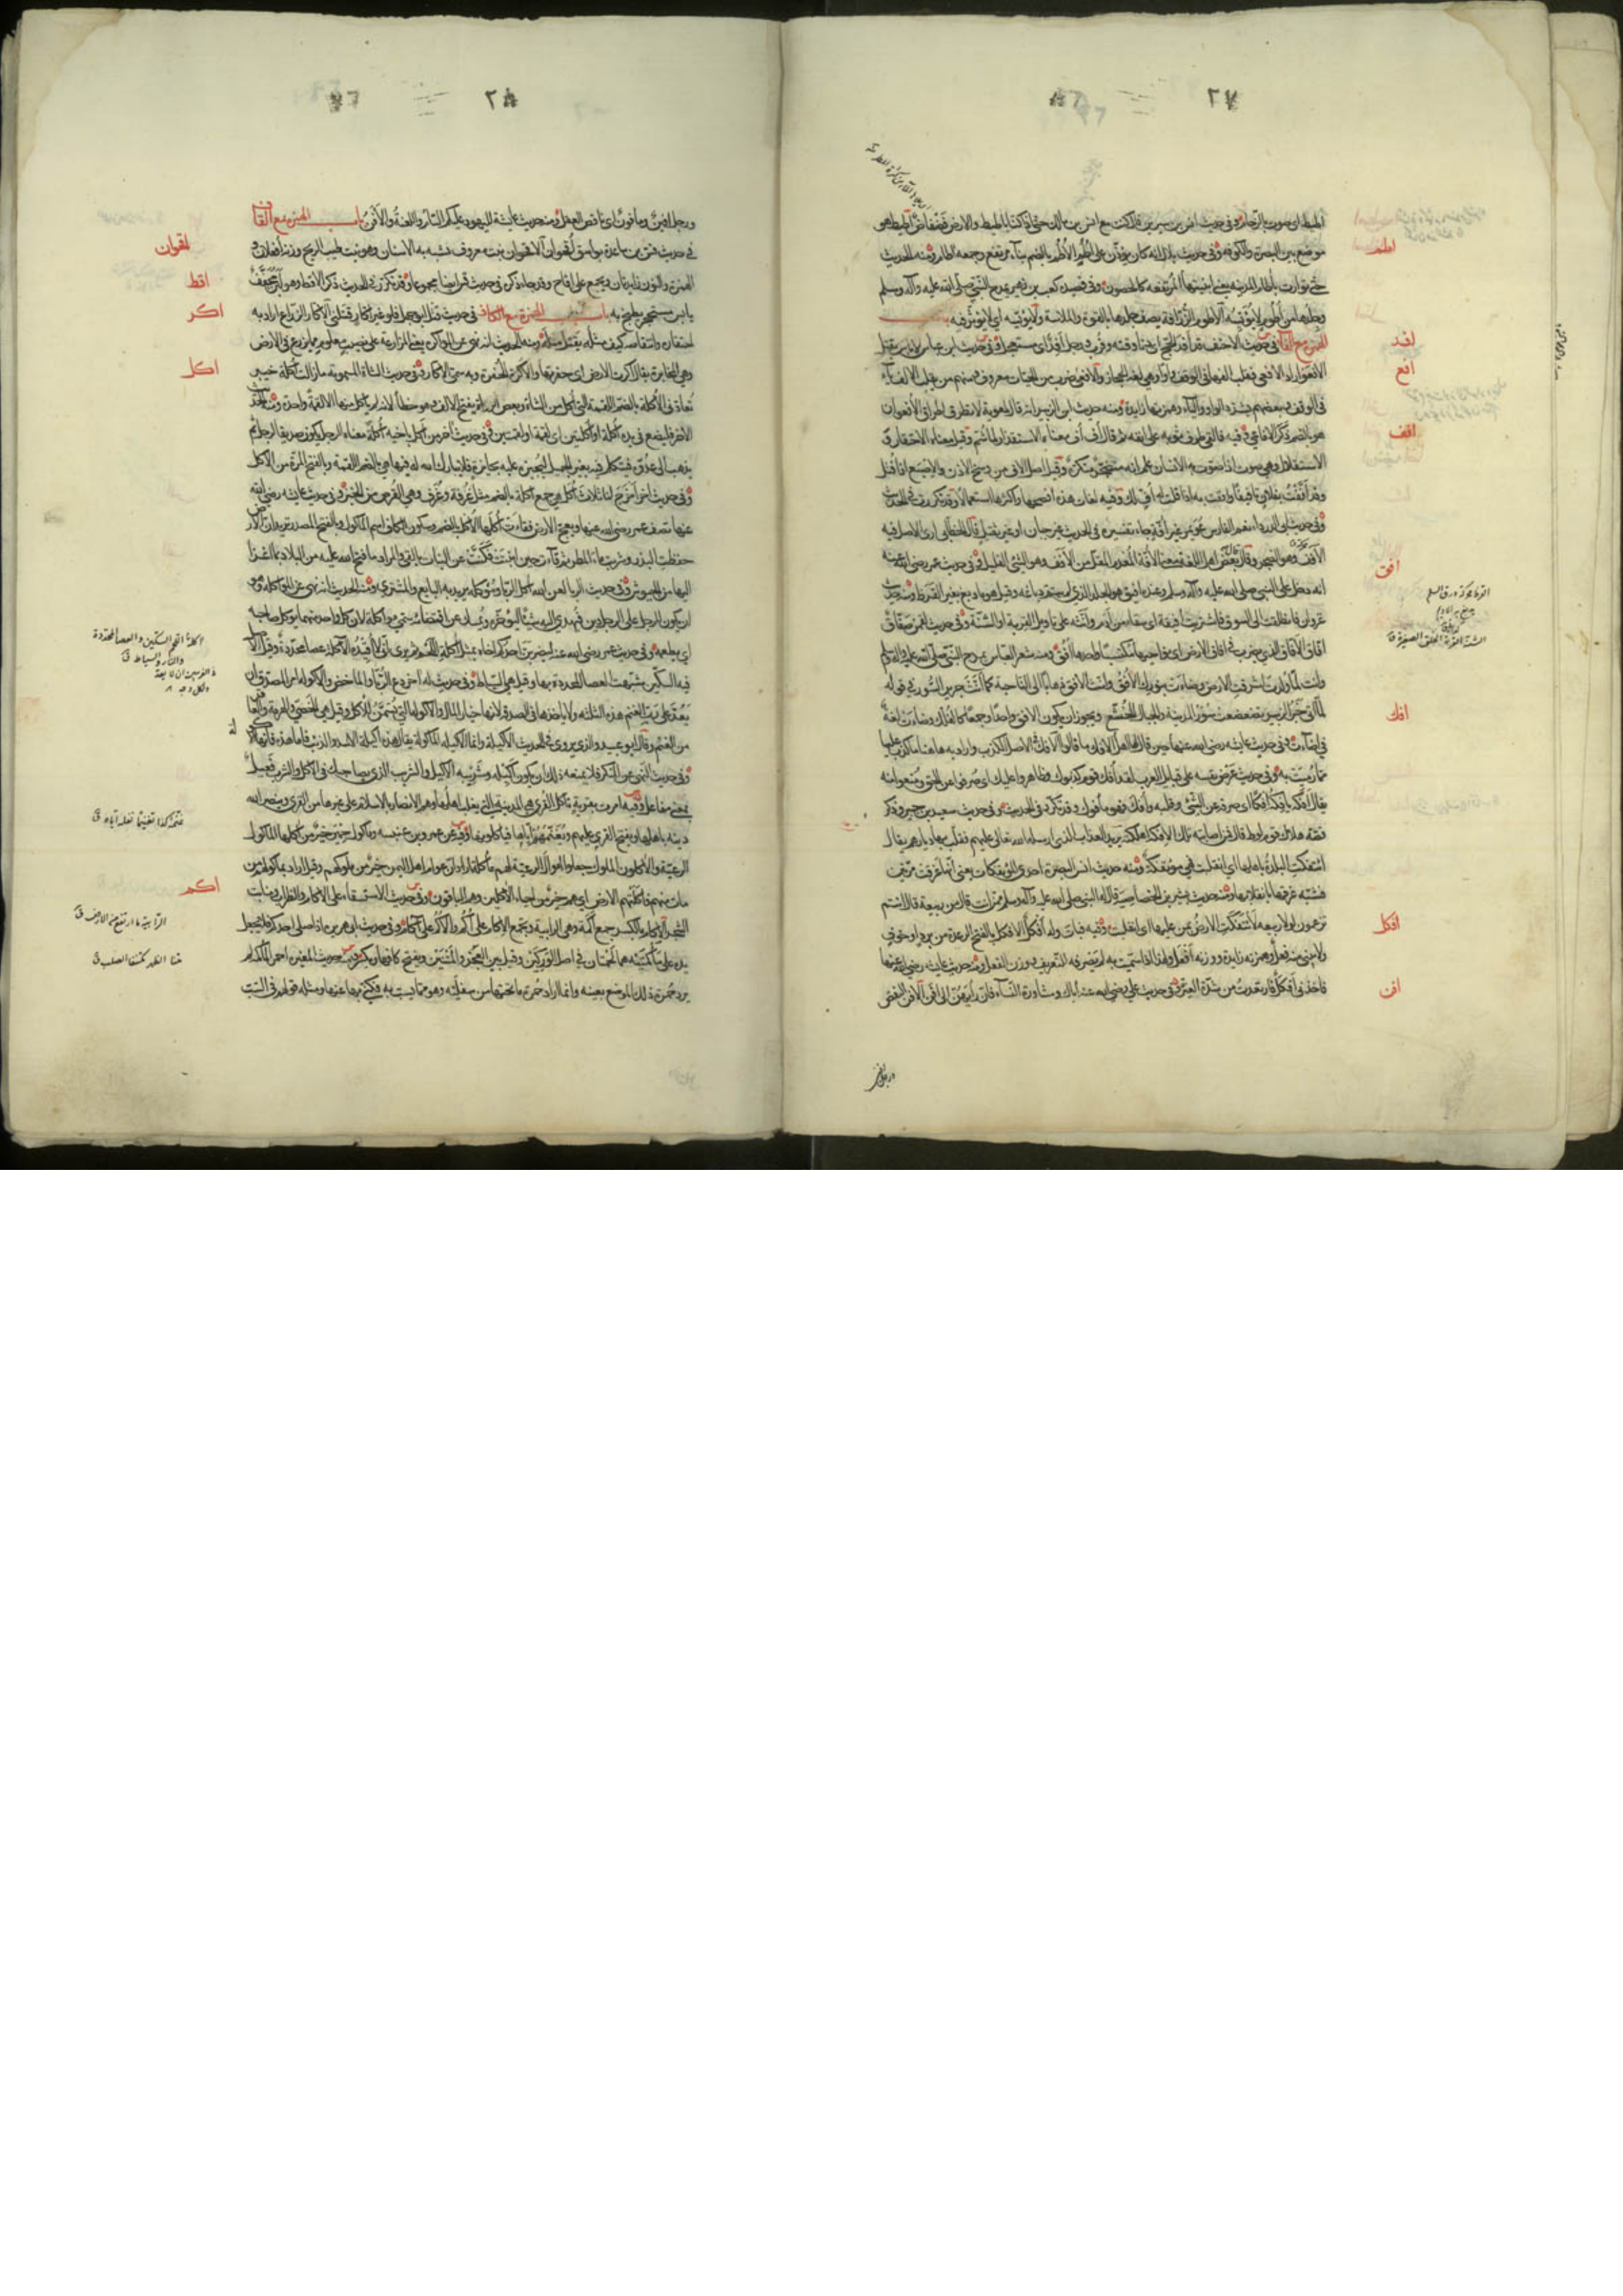 ٢٧
اطيط اى صوت بالزحام وفى حديث انس بن سيرين قال كنت مع انس بن مالك حتى اذا كنا باطيط والارض فضفاض اطيط هو
اطم
موضع بين البصرة والكوفة وفى حديث بلال انه كان يؤذن على اطم الاطم بالضم بناء مرتفع وجمعه آطام ومنه الحديث
حتى توارت بآطام المدينة يعنى ابنيتها المرتفعة كالحصون وفى قصيد كعب بن زهير يمدح النبى صلى الله عليه وآله وسلم
وجلدها من اطوم لا يؤيسه الاطوم الزرافة يصف جلدها بالقوة والملاسة ولا يؤيسه اى لا يؤثر فيه باب
افد
الهمزة مع الفاء فى حديث الاحنف قد افد الحج اى دنا وقته وقرب ورجل افد اى مستعجل وفى حديث ابن عباس لا باس بقتل
افع
الافعو اراد الافعى فقلب الفها فى الوقف واوا وهى لغة اهل الحجاز والافعى ضرب من الحيات معروف ومنهم من يقلب الالف ياء
فى الوقف وبعضهم يشدد الواو والياء وهمزتها زايدة ومنه حديث ابن الزبير انه قال لمعوية لا تطرق اطراق الافعوان
افف
هو بالضم ذكر الافاعى وفيه فالقى طرف ثوبه على انفه ثم قال اف اف معناه الاستقذار لما شم وقيل معناه الاحتقار و
الاستقلال وهى صوت اذا صوت به الانسان علم انه متضجر متكره وقيل اصل الاف من وسخ الاذن والاصبع اذا فتل
وقد اففت بفلان تافيفا وافت به اذا قلت له اف لك وفيه لغات هذه افصحها واكثرها استعمالا وقد تكررت فى الحديث
وفى حديث ابى الدرداء نعم الفارس عويمر غير افة جاء تفسيره فى الحديث غير جبان او غير ثقيل قال الخطابى ارى الاصل فيه
الافف وهو الضجر وقال بعض اهل اللغة معنى الافة المعدم المقل من الافف وهو الشئ القليل وفى حديث عمر رضى الله عنه
افق
انه دخل على النبى صلى الله عليه وآله وسلم وعنده افيق هو الجلد الذى لم يتم دباغه وقيل هو ما دبغ بغير القرظ ومنه حديث
غزوان فانطلقت الى السوق فاشتريت افيقة اى سقاء من ادم وانثه على تاويل القربة او الشنة وفى حديث لقمن صفاق
افاق الافاق الذى يضرب فى افاق الارض اى نواحيها مكتسبا واحدها افق ومنه شعر العباس يمدح النبى صلى الله عليه وآله وسلم
وانت لما ولدت اشرقت الارض وضاءت بنورك الافق وانث الافق ذهابا الى الناحية كما انث جرير السور فى قوله
افك
لما اتى خبر الزبير تضعضعت سور المدينة والجبال الخشع ويجوز ان يكون الافق واحدا وجمعا كالفلك وضاءت لغة
فى اضاءت وفى حديث عايشة رضى الله عنها حين قال لها اهل الافك ما قالوا الافك فى الاصل الكذب واراد به ها هنا ما كذب عليها
مما رميت به وفى حديث عرض نفسه على قبايل العرب لقد افك قوم كذبوك وظاهروا عليك اى صرفوا عن الحق ومنعوا منه
يقال افكه يافكه افكا اى صرفه عن الشئ وقلبه وافك فهو مأفوك وقد تكرر فى الحديث وفى حديث سعيد بن جبير وذكر
قصة هلاك قوم لوط قال فمن اصابته تلك الافكة اهلكته يريد العذاب الذى ارسله الله تعالى عليهم فقلب بها ديارهم يقال
ائتفكت البلدة باهلها اى انقلبت فهى مؤتفكة ومنه حديث انس البصرة احدى المؤتفكات يعنى انها غرقت مرتين
فشبه غرقها بانقلابها ومنه حديث بشير بن الخصاصية قال له النبى صلى الله عليه وآله وسلم ممن انت قال من ربيعة قال انتم
افكل
تزعمون لولا ربيعة لائتفكت الارض بمن عليها اى انقلبت وفيه فبات وله افكل الافكل بالفتح الرعدة من برد او خوف
ولا يبنى منه فعل وهمزته زايدة ووزنه افعل ولهذا اذا سميت به لم تصرفه للتعريف ووزن الفعل ومنه حديث عايشة رضى الله عنها
افن
فاخذنى افكل وارتعدت من شدة الغيرة وفى حديث على رضى الله عنه اياك ومشاورة النساء فان رايهن الى افن الافن النقص
٢٨
ورجل افين ومافون اى ناقص العقل ومنه حديث عايشة لليهود عليكم اللعنة والسام والافن باب الهمزة مع القاف
اقحوان
فى حديث قس بن ساعدة بواسق اقحوان الاقحوان نبت معروف تشبه به الاسنان وهو نبت طيب الريح ووزنه افعلان و
اقط
الهمزة والنون زايدتان ويجمع على اقاح وقد جاء ذكره فى حديث قس ايضا مجموعا وقد تكرر فى الحديث ذكر الاقط وهو لبن مجفف
اكر
يابس مستحجر يطبخ به باب الهمزة مع الكاف فى حديث قتل ابى جهل فلو غير اكار قتلنى الاكار الزراع اراد به
احتقاره وانتقاصه كيف مثله يقتل مثله ومنه الحديث انه نهى عن المؤاكرة يعنى المزارعة على نصيب معلوم مما يزرع فى الارض
اكل
وهى المخابرة يقال اكرت الارض اى حفرتها والاكرة الحفرة وبه سمى الاكار وفى حديث الشاة المسمومة ما زالت اكلة خيبر
تعادنى الاكلة بالضم اللقمة التى اكل من الشاة وبعض الرواة يفتح الالف وهو خطأ لانه لم ياكل منها الا لقمة واحدة ومنه الحديث
الاخر فليضع فى يده اكلة او اكلتين اى لقمة او لقمتين وفى حديث آخر من اكل باخيه اكلة معناه الرجل يكون صديقا لرجل ثم
يذهب الى عدوه فيتكلم فيه بغير الجميل ليجيزه عليه بجايزة فلا يبارك الله له فيها هى بالضم اللقمة وبالفتح المرة من الاكل
وفى حديث آخر اخرج لنا ثلاث اكل هى جمع اكلة بالضم مثل غرفة وغرف وهى القرص من الخبز وفى حديث عايشة رضى الله
عنها تصف عمر رضى الله عنهما وبعج الارض فقاءت اكلها الاكل بالضم وسكون الكاف اسم الماكول وبالفتح المصدر تريد ان الارض
حفظت البذر وشربت ماء المطر ثم قاءت حين انبتت فكنت عن النبات بالقئ والمراد ما فتح الله عليه من البلاد بما اغزا
اليها من الجيوش وفى حديث الربا لعن الله اكل الربا ومؤكله يريد به البايع والمشترى ومنه الحديث انه نهى عن المؤاكلة وهو
ان يكون للرجل على الرجل دين فيهدى اليه شيئا ليؤخره ويمسك عن اقتضائه سمى مؤاكلة لان كل واحد منهما يؤكل صاحبه
اى يطعمه وفى حديث عمر رضى الله عنه ليضربن احدكم اخاه بمثل آكلة اللحم ثم يرى انى لا اقيده الآكلة عصا محددة وقيل الاصل
فيه السكين شبهت العصا المحددة بها وقيل هى السياط وفى حديث له آخر دع الربا والماخض والاكولة امر المصدق ان
يعد على رب الغنم هذه الثلثة ولا ياخذها فى الصدقة لانها خيار المال والاكولة التى تسمن للاكل وقيل هى الخصى والهرمة والعاقر
من الغنم وقال ابو عبيد والذى يروى فى الحديث الاكيلة وانما الاكيلة الماكولة يقال هذه اكيلة الاسد والذئب فاما هذه فانها الاكولة
وفى حديث النهى عن المنكر فلا يمنعه ذلك ان يكون اكيله وشريبه الاكيل والشريب الذى يصاحبك فى الاكل والشرب فعيل
بمعنى مفاعل وفيه امرت بقرية تاكل القرى هى المدينة اى يغلب اهلها وهم الانصار بالاسلام على غيرها من القرى وينصر الله
دينه باهلها ويفتح القرى عليهم ويغنمهم اياها فياكلونها وفيه عن عمرو بن عبسة وماكول حمير خير من اكلها الماكول
الرعية والاكلون الملوك جعلوا اموال الرعية لهم مأكلة اراد ان عوام اهل اليمن خير من ملوكهم وقيل اراد بماكولهم من
اكم
مات منهم فاكلتهم الارض اى هم خير من الاحياء الاكلين وهم الباقون وفى حديث الاستسقاء على الاكام والظراب ومنابت
الشجر الاكام بالكسر جمع اكمة وهى الرابية وتجمع الاكام على اكم والاكم على آكام وفى حديث ابى هريرة اذا صلى احدكم فلا يجعل
يده على مأكمتيه هما لحمتان فى اصل الوركين وقيل بين العجز والمتنين وتفتح كافها وتكسر ومنه حديث المغيرة احمر المأكمة لم
يرد حمرة ذلك الموضع بعينه وانما اراد حمرة ما تحتها من سفلته وهو مما يسب به فكنى عنها بها ومثله قولهم فى السب
الرابية ما ارتفع من الارض ق